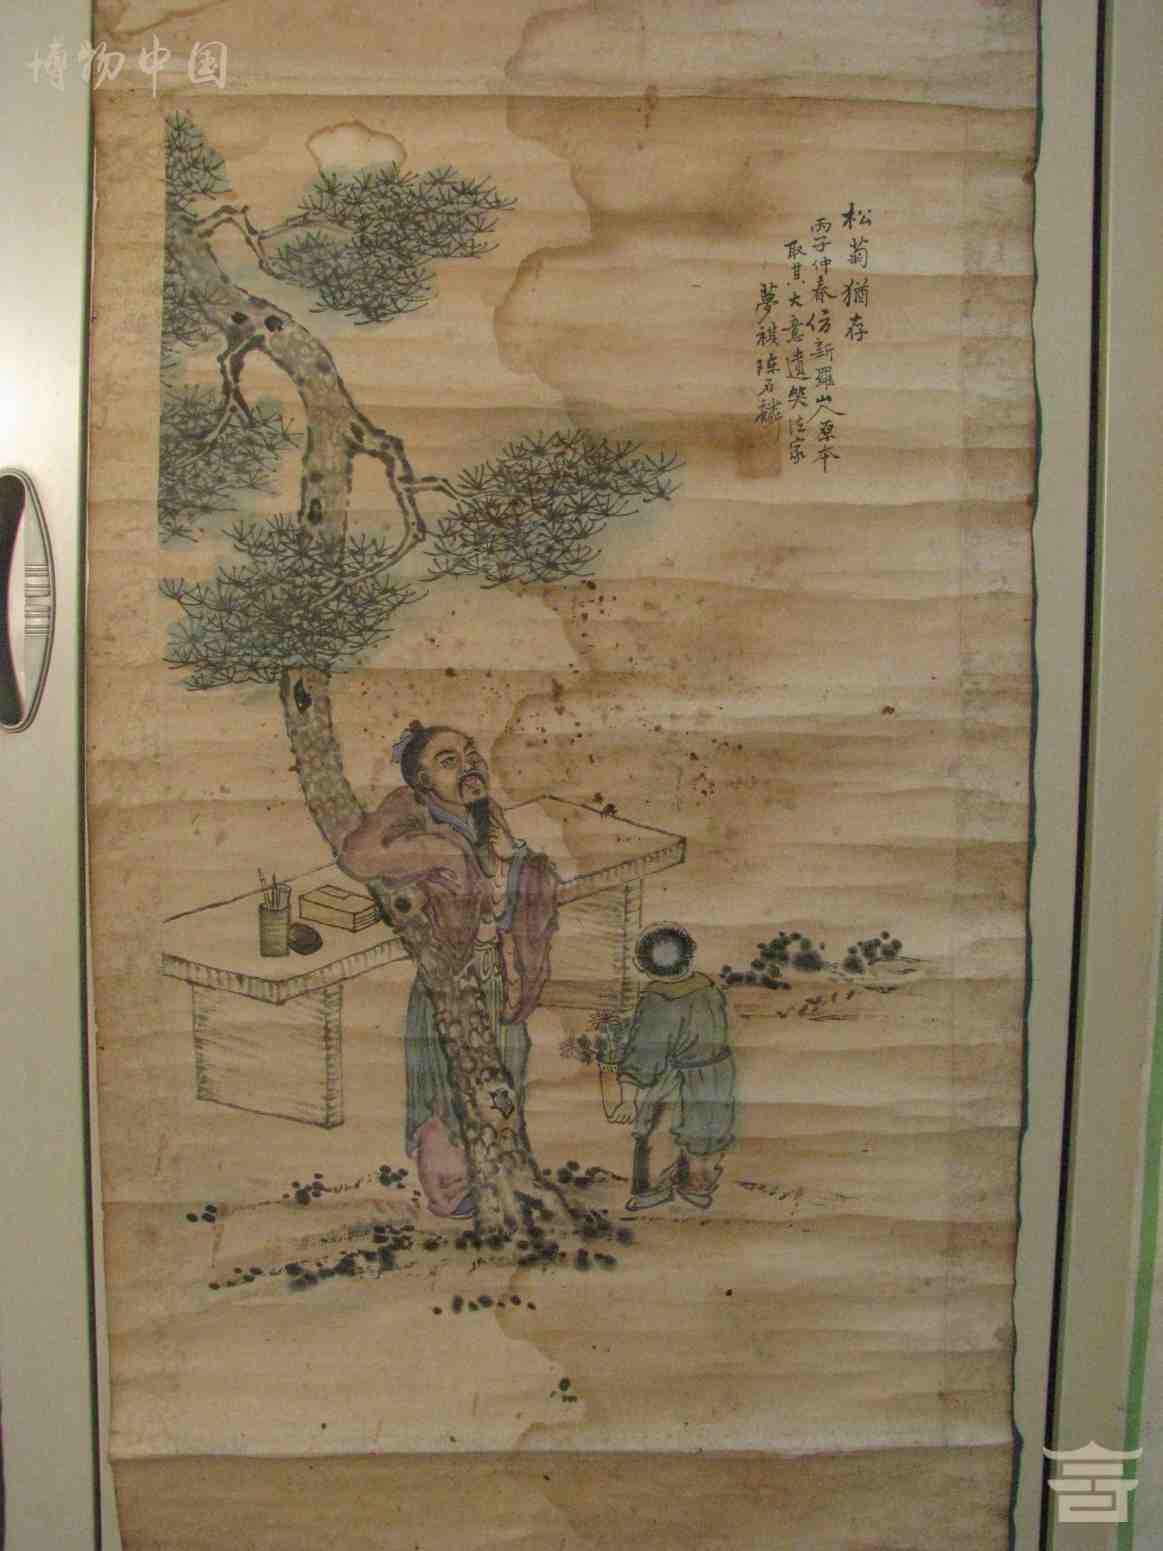 博物中国
松菊猶存
丙子仲春仿新羅山人原本
取其大意遺笑法家
夢祺陳